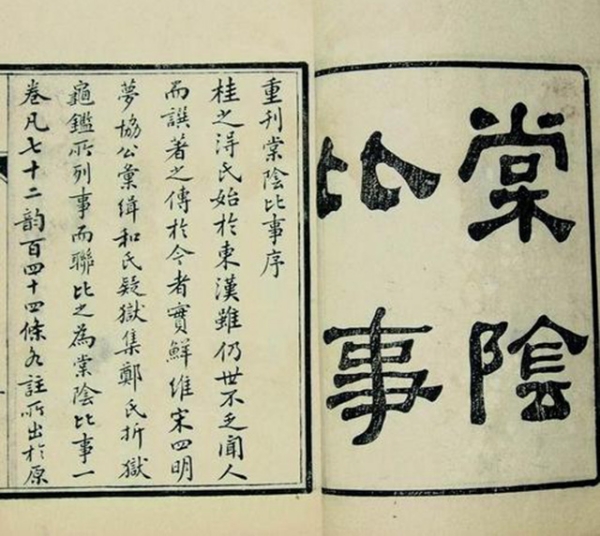 棠陰
比事
重刊棠陰比事序
桂之得氏始於東漢雖仍世不乏聞人
而譔著之傳於今者實鮮維宋四明
夢協公彙緝和氏疑獄集鄭氏折獄
龜鑑所列事而聯比之為棠陰比事一
卷凡七十二韵百四十四條各註所出於原